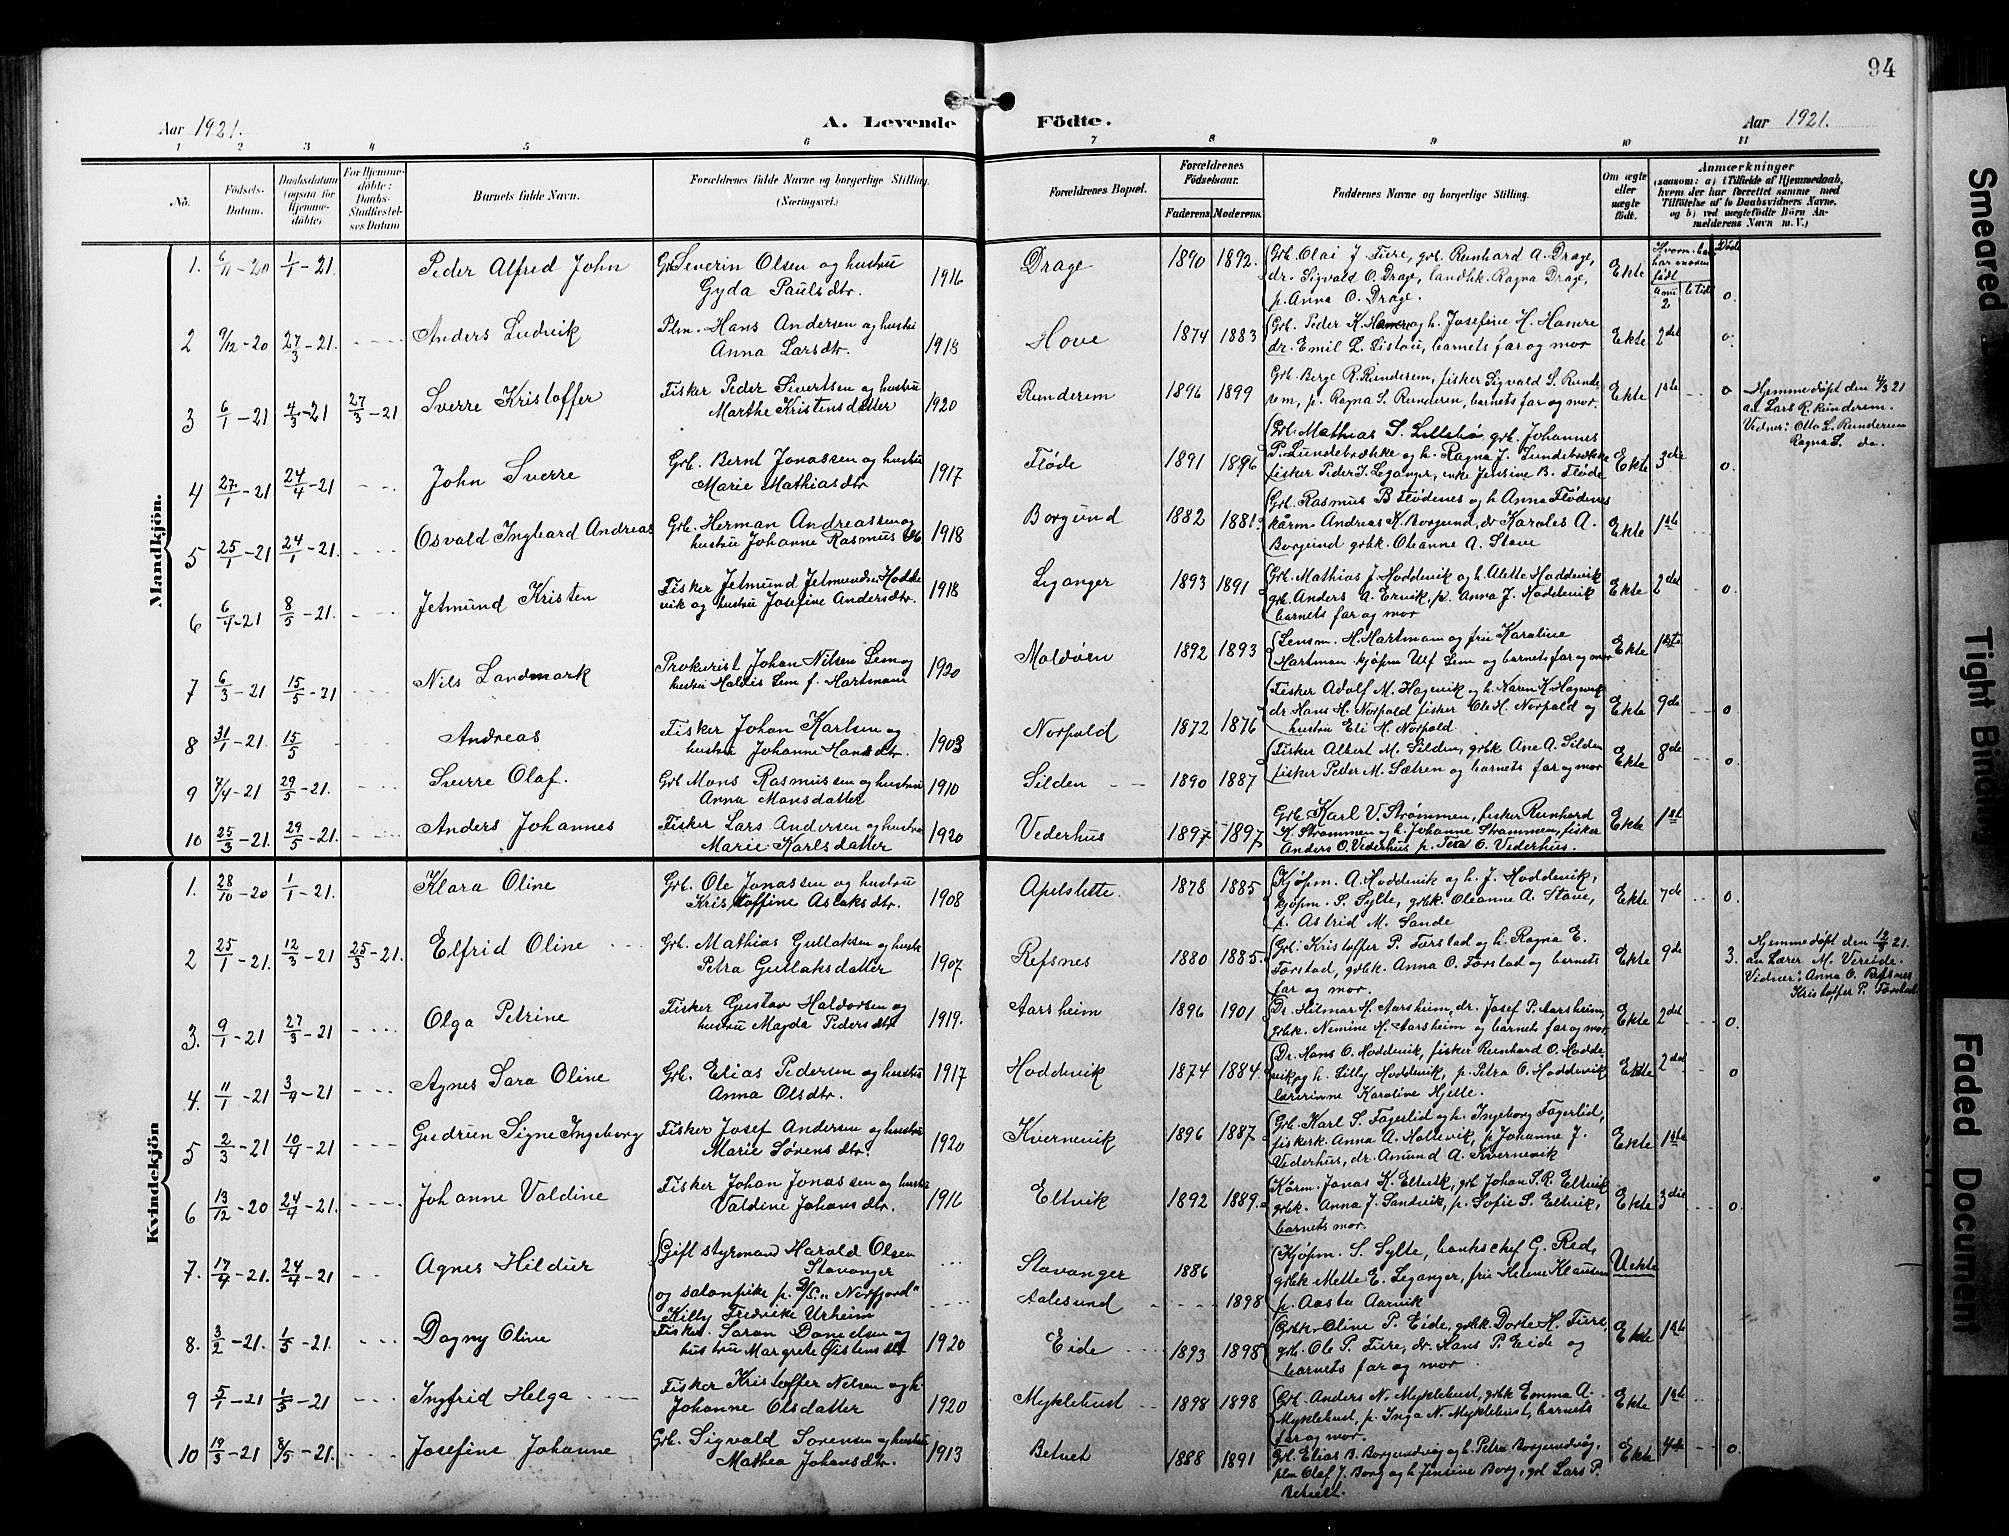 94
Aar 1921.
A. Levende Födte.
Aar 1921.
1 2 3 4 5 6 7 8 9 10 11
No.
Födsels-Datum.
Daabsdatum (ogsaa for Hjemmedöbte)
For Hjemmedöbte: Daabs-Stadfæstelses Datum
Barnets fulde Navn.
Forældrenes fulde Navne og borgerlige Stilling. (Næringsvei.)
Forældrenes Bopæl.
Forældrenes Födselsaar.
Faderens Moderens.
Faddernes Navne og borgerlige Stilling.
Om ægte eller uægte födt.
Anmærkninger
(saasom: a) i Tilfælde af Hjemmedaab,
hvem der har forrettet samme, med
Tilföielse af to Daabsvidners Navne,
og b) ved uægtefödte Börn An-
melderens Navn m. V.)
Mandkjön.
1. 6/11-20 1/1-21. Peder Alfred John
Severin Olsen og hustru
Gyda Paulsdtr.
1916 Drage 1890 1892.
Grb. Olai J. Fure, grb. Reinhard A. Drage,
dr. Sigvald O. Drage, landhk. Ragna Drage,
p. Anna O. Drage.
Ekte 2 0.
2 9/12-20 27/3-21. Anders Ludvik
Plm. Hans Andersen og hustru
Anna Larsdtr.
1918 Hove 1874 1883
Grb. Peder K. Hamre og h. Josefine H. Hamre
dr. Emil L. Listou, barnets far og mor
Ekte 2det 0.
3 6/1-21 4/3-21 27/3-21 Sverre Kristoffer
Fisker Peder Sivertsen og hustru
Marthe Kristensdatter
1920 Runderem 1896 1899
Grb. Berge R. Runderem, fisker Sigvald S. Runde-
rem, p. Ragna S. Runderem, barnets far og mor.
Ekte 1ste 0
Hjemmedøpt den 4/3 21
av Lars R. Runderem.
Vidner: Otto L. Runderem
Ragna L. do.
4 27/1-21 24/4-21 John Sverre
Grb. Bernt Jonassen og hustru
Marie Mathiasdtr
1917 Fløde 1891 1896
Grb. Mathias S. Lillebø, grb. Johannes
P. Lundebrække og h. Ragna J. Lundebrække
fisker Peder J. Leganger, enke Jensine B. Fløde
Ekte 3die 0.
5 25/1-21 24/1-21. Osvald Ingbard Andreas
Grb. Herman Andreassen og
hustru Johanne Rasmusdtr
1918 Borgund 1882 1881
Grb. Rasmus B Flødenes og h. Anna Flødenes
kårm. Andreas K. Borgund, dr Karoles A.
Borgund grbk. Oleanne A. Stave
Ekte 1ste 0.
6 6/4-21 8/5-21. Jetmund Kristen
Fisker Jetmund Jetmundsen Hodde-
vik og hustru Josefine Andersdtr.
1918 Leganger 1893 1891
Grb. Mathias J. Hoddevik og h. Alette Hoddevik
grb. Anders A. Ervik, p. Anna J. Hoddevik
barnets far og mor
Ekte 2det 0.
7 6/3-21 15/5-21 Nils Landmark
Prokurist Johan Nilsen Lem og
hustru Haldis Lem f. Hartmann
1920 Moldøen 1892 1893
Lensm. H. Hartmann og fru Karoline
Hartman kjøpm Ulf Lem og barnets far og mor
Ekte 1ste
8 31/1-21. 15/5 Andreas
Fisker Johan Karlsen og
hustru Johanne Hansdtr.
1903 Norpold 1872 1876
Fisker Adolf M. Hagevik og h. Karen K. Hagevik
dr Hans H. Norpold fisker Ole H. Norpold og
hustru Eli H. Norpold
Ekte 9de 0
9 7/4-21 29/5-21. Sverre Olaf.
Grb Mons Rasmussen og hustru
Anna Monsdatter
1910 Silden 1890 1887
Fisker Albert M. Silden, grbk Ane A. Silden
fisker Peder M. Sætren og barnets far og mor
Ekte 8de 0
10 25/3-21. 29/5-21. Anders Johannes
Fisker Lars Andersen og hustru
Marie Karlsdatter
1920 Vederhus 1897 1897
Grb Karl V. Strømmen, fisker Reinhard
K. Strømmen og h. Johanne Strømmen, fisker
Anders O. Vederhus p. Tea O. Vederhus.
Ekte 1st
Kvindekjön
1. 28/10-20 1/1-21. Klara Oline
Grb. Ole Jonassen og hustru
Kristoffine Aslaksdtr.
1908 Apelsette. 1878 1885
Kjøpm. A. Hoddevik og h. J. Hoddevik,
kjøpm. S. Sylte, grbk. Oleanne A. Stave,
p. Astrid M. Sande
Ekte 7de 0.
2 25/1-21. 12/3-21 25/3-21. Elfrid Oline
Grb. Mathias Gullaksen og hustr
Petra Gullaksdatter
1907 Refsnes 1880 1885.
Grb. Kristoffer P. Førstad og h. Ragna E.
Førstad, grbk. Anna O. Førstad og barnets
far og mor.
Ekte 9de 3.
Hjemmedøpt den 12/3 21.
av Lærer M. Vereide.
Vidner: Anna O. Refsnes
Kristoffer P. Førstad
3. 9/1-21 27/3-21 Olga Petrine
Fisker Gustav Haldorsen og
hustru Magda Pedersdtr
1919. Aarsheim 1896 1901
Dr. Hilmar H. Aarsheim, dr. Josef P. Aarsheim,
grbk. Nemine H. Aarsheim og barnets far og mor
Ekte 2det 0.
4. 11/1-21 3/4-21 Agnes Sara Oline
Grb. Elias Pedersen og hustru
Anna Olsdtr.
1917 Hoddevik 1874 1884.
Dr. Hans O. Hoddevik, fisker Reinhard O. Hodde-
vik og h. Lilly Hoddevik, p. Petra O. Hoddevik
lærerinne Karoline Hjelle.
Ekte 2det 0
5 2/3-21 10/4-21 Gudrun Signe Ingeborg
Fisker Josef Andersen og hustru
Marie Sørensdtr.
1920 Kvernevik 1896 1887
Grb. Karl S. Fagerlid og h. Ingeborg Fagerlid,
fiskerk. Anna A. Hollevik, p. Johanne J.
Vederhus, dr. Amund A. Kvernevik
Ekte 1ste
6 13/12-20 24/4-21. Johanne Valdine
Fisker Johan Jonassen og hustru
Valdine Johansdtr.
1916 Eltvik 1892 1889
Kårm. Jonas K. Eltvik, grb Johan S.R. Eltvik
grbk. Anna J. Sandvik, p. Sofie S. Eltvik,
barnets mor.
Ekte 3die 0.
7. 17/4-21. 24/4-21 Agnes Hildur
Gift styrmand Harald Olsen
Stavanger
og salonpike p. D/S „Nordfjord“
Killy Fredrikke Urheim
Stavanger 1886
Aalesund 1898
Kjøpm. S. Sylte, bankchef G. Red,
grbk Mette E. Leganger, fru Helene Klausen
p. Aasta Aarvik
Uekte
8. 3/2-21. 1/5-21. Dagny Oline
Fisker Søran Danielsen og
hustru Margrete Øistensdtr
1920 Eide 1893 1898
Grbk. Oline P. Eide, grbk Dorte H. Fure,
grb. Ole P. Fure, dr. Hans P. Eide og
barnets far og mor.
Ekte 1ste
9 5/1-21 1/5-21 Ingfrid Helga
Fisker Kristoffer Nelsen og h.
Johanne Olsdatter
1920 Myklebust 1898 1898
Grb. Anders N. Myklebust, grbk Emma A.
Myklebust, p. Inga N. Myklebust, barnets
far og mor.
Ekte 1ste
10 19/3-21 8/5-21. Josefine Johanne
Grb. Sigvald Sørensen og hustru
Mathea Johansdtr.
1913 1888 1891
Grb. Elias B. Borgundvåg og h. Petra Borgundvåg,
plm Olaf J. Borg og h Jensine Borg, grb Lars P.
Ekte 4de 0.
Smeared
Tight Binding
Faded Document